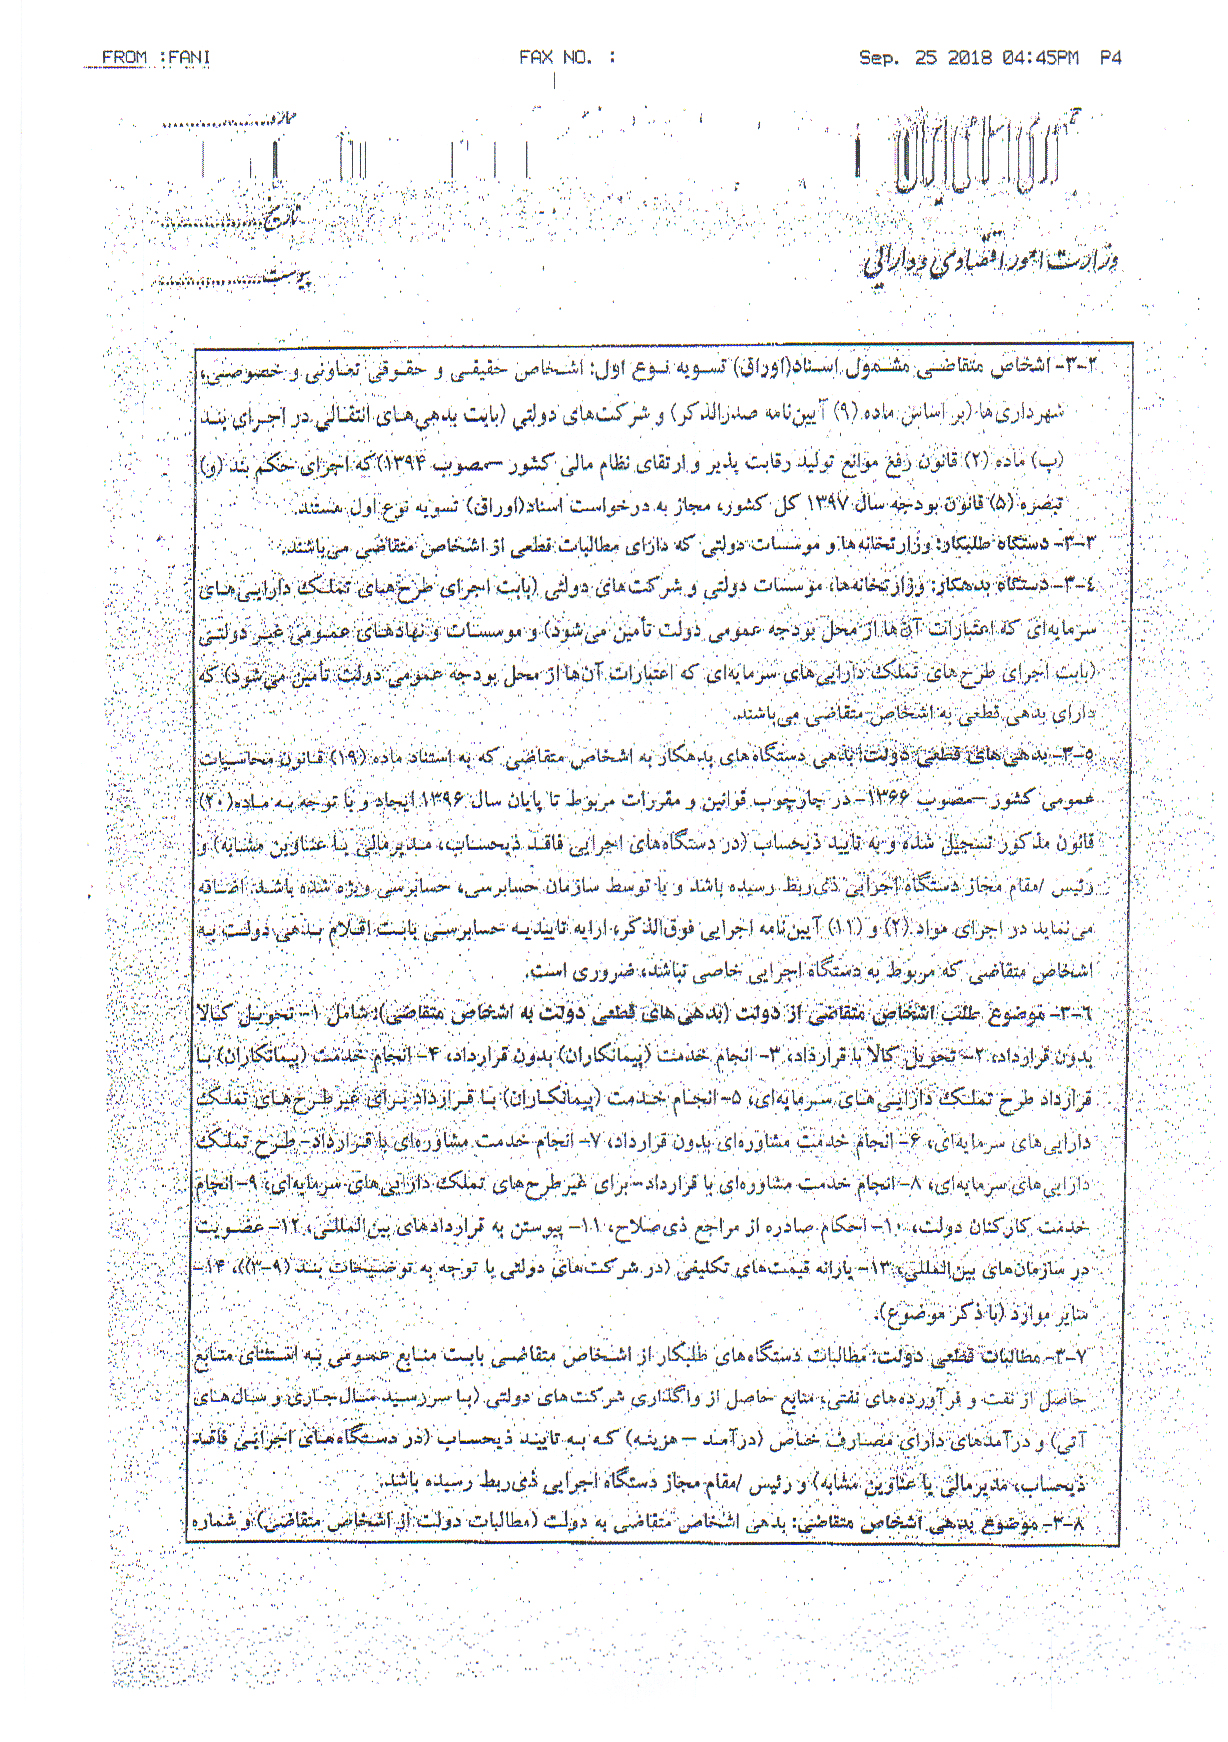 FROM :FANI FAX NO. : Sep. 25 2018 04:45PM P4
شماره..................
جمهوری اسلامی ایران
تاریخ..................
وزارت امور اقتصادی و دارائی
پیوست..................
۳-۲- اشخاص متقاضی مشمول اسناد(اوراق) تسویه نوع اول: اشخاص حقیقی و حقوقی تعاونی و خصوصی،
شهرداری‌ها (بر اساس ماده (۹) آیین‌نامه صدرالذکر) و شرکت‌های دولتی (بابت بدهی‌های انتقالی در اجرای بند
(پ) ماده (۲) قانون رفع موانع تولید رقابت پذیر و ارتقای نظام مالی کشور –مصوب ۱۳۹۴)که اجرای حکم بند (و)
تبصره (۵) قانون بودجه سال ۱۳۹۷ کل کشور، مجاز به درخواست اسناد(اوراق) تسویه نوع اول هستند.
۳-۳- دستگاه طلبکار: وزارتخانه‌ها و موسسات دولتی که دارای مطالبات قطعی از اشخاص متقاضی می‌باشند.
۳-۴- دستگاه بدهکار: وزارتخانه‌ها، موسسات دولتی و شرکت‌های دولتی (بابت اجرای طرح‌های تملک دارایی‌های
سرمایه‌ای که اعتبارات آن‌ها از محل بودجه عمومی دولت تأمین می‌شود) و موسسات و نهادهای عمومی غیر دولتی
(بابت اجرای طرح‌های تملک دارایی‌های سرمایه‌ای که اعتبارات آن‌ها از محل بودجه عمومی دولت تأمین می‌شود) که
دارای بدهی قطعی به اشخاص متقاضی می‌باشند.
۳-۵- بدهی‌های قطعی دولت: بدهی دستگاه‌های بدهکار به اشخاص متقاضی که به استناد ماده (۱۹) قانون محاسبات
عمومی کشور –مصوب ۱۳۶۶- در چارچوب قوانین و مقررات مربوط تا پایان سال ۱۳۹۶ ایجاد و با توجه به ماده(۲۰)
قانون مذکور تسجیل شده و به تایید ذیحساب (در دستگاه‌های اجرایی فاقد ذیحساب، مدیرمالی یا عناوین مشابه) و
رئیس /مقام مجاز دستگاه اجرایی ذی‌ربط رسیده باشد و یا توسط سازمان حسابرسی، حسابرسی ویژه شده باشد. اضافه
می‌نماید در اجرای مواد (۲) و (۱۱) آیین‌نامه اجرایی فوق‌الذکر، ارایه تاییدیه حسابرسی بابت اقلام بدهی دولت به
اشخاص متقاضی که مربوط به دستگاه اجرایی خاصی نباشد، ضروری است.
۳-۶- موضوع طلب اشخاص متقاضی از دولت (بدهی‌های قطعی دولت به اشخاص متقاضی): شامل ۱- تحویل کالا
بدون قرارداد، ۲- تحویل کالا با قرارداد، ۳- انجام خدمت (پیمانکاران) بدون قرارداد، ۴- انجام خدمت (پیمانکاران) با
قرارداد طرح تملک دارایی‌های سرمایه‌ای، ۵- انجام خدمت (پیمانکاران) با قرارداد برای غیرطرح‌های تملک
دارایی‌های سرمایه‌ای، ۶- انجام خدمت مشاوره‌ای بدون قرارداد، ۷- انجام خدمت مشاوره‌ای با قرارداد- طرح تملک
دارایی‌های سرمایه‌ای، ۸- انجام خدمت مشاوره‌ای با قرارداد- برای غیرطرح‌های تملک دارایی‌های سرمایه‌ای، ۹- انجام
خدمت کارکنان دولت، ۱۰- احکام صادره از مراجع ذی‌صلاح، ۱۱- پیوستن به قراردادهای بین‌المللی، ۱۲- عضویت
در سازمان‌های بین‌المللی، ۱۳- یارانه قیمت‌های تکلیفی (در شرکت‌های دولتی با توجه به توضیحات بند (۹-۳))، ۱۴-
سایر موارد (با ذکر موضوع).
۳-۷- مطالبات قطعی دولت: مطالبات دستگاه‌های طلبکار از اشخاص متقاضی بابت منابع عمومی به استثنای منابع
حاصل از نفت و فرآورده‌های نفتی، منابع حاصل از واگذاری شرکت‌های دولتی (با سررسید سال جاری و سال‌های
آتی) و درآمدهای دارای مصارف خاص (درآمد – هزینه) که به تایید ذیحساب (در دستگاه‌های اجرایی فاقد
ذیحساب، مدیرمالی یا عناوین مشابه) و رئیس /مقام مجاز دستگاه اجرایی ذی‌ربط رسیده باشد.
۳-۸- موضوع بدهی اشخاص متقاضی: بدهی اشخاص متقاضی به دولت (مطالبات دولت از اشخاص متقاضی) و شماره